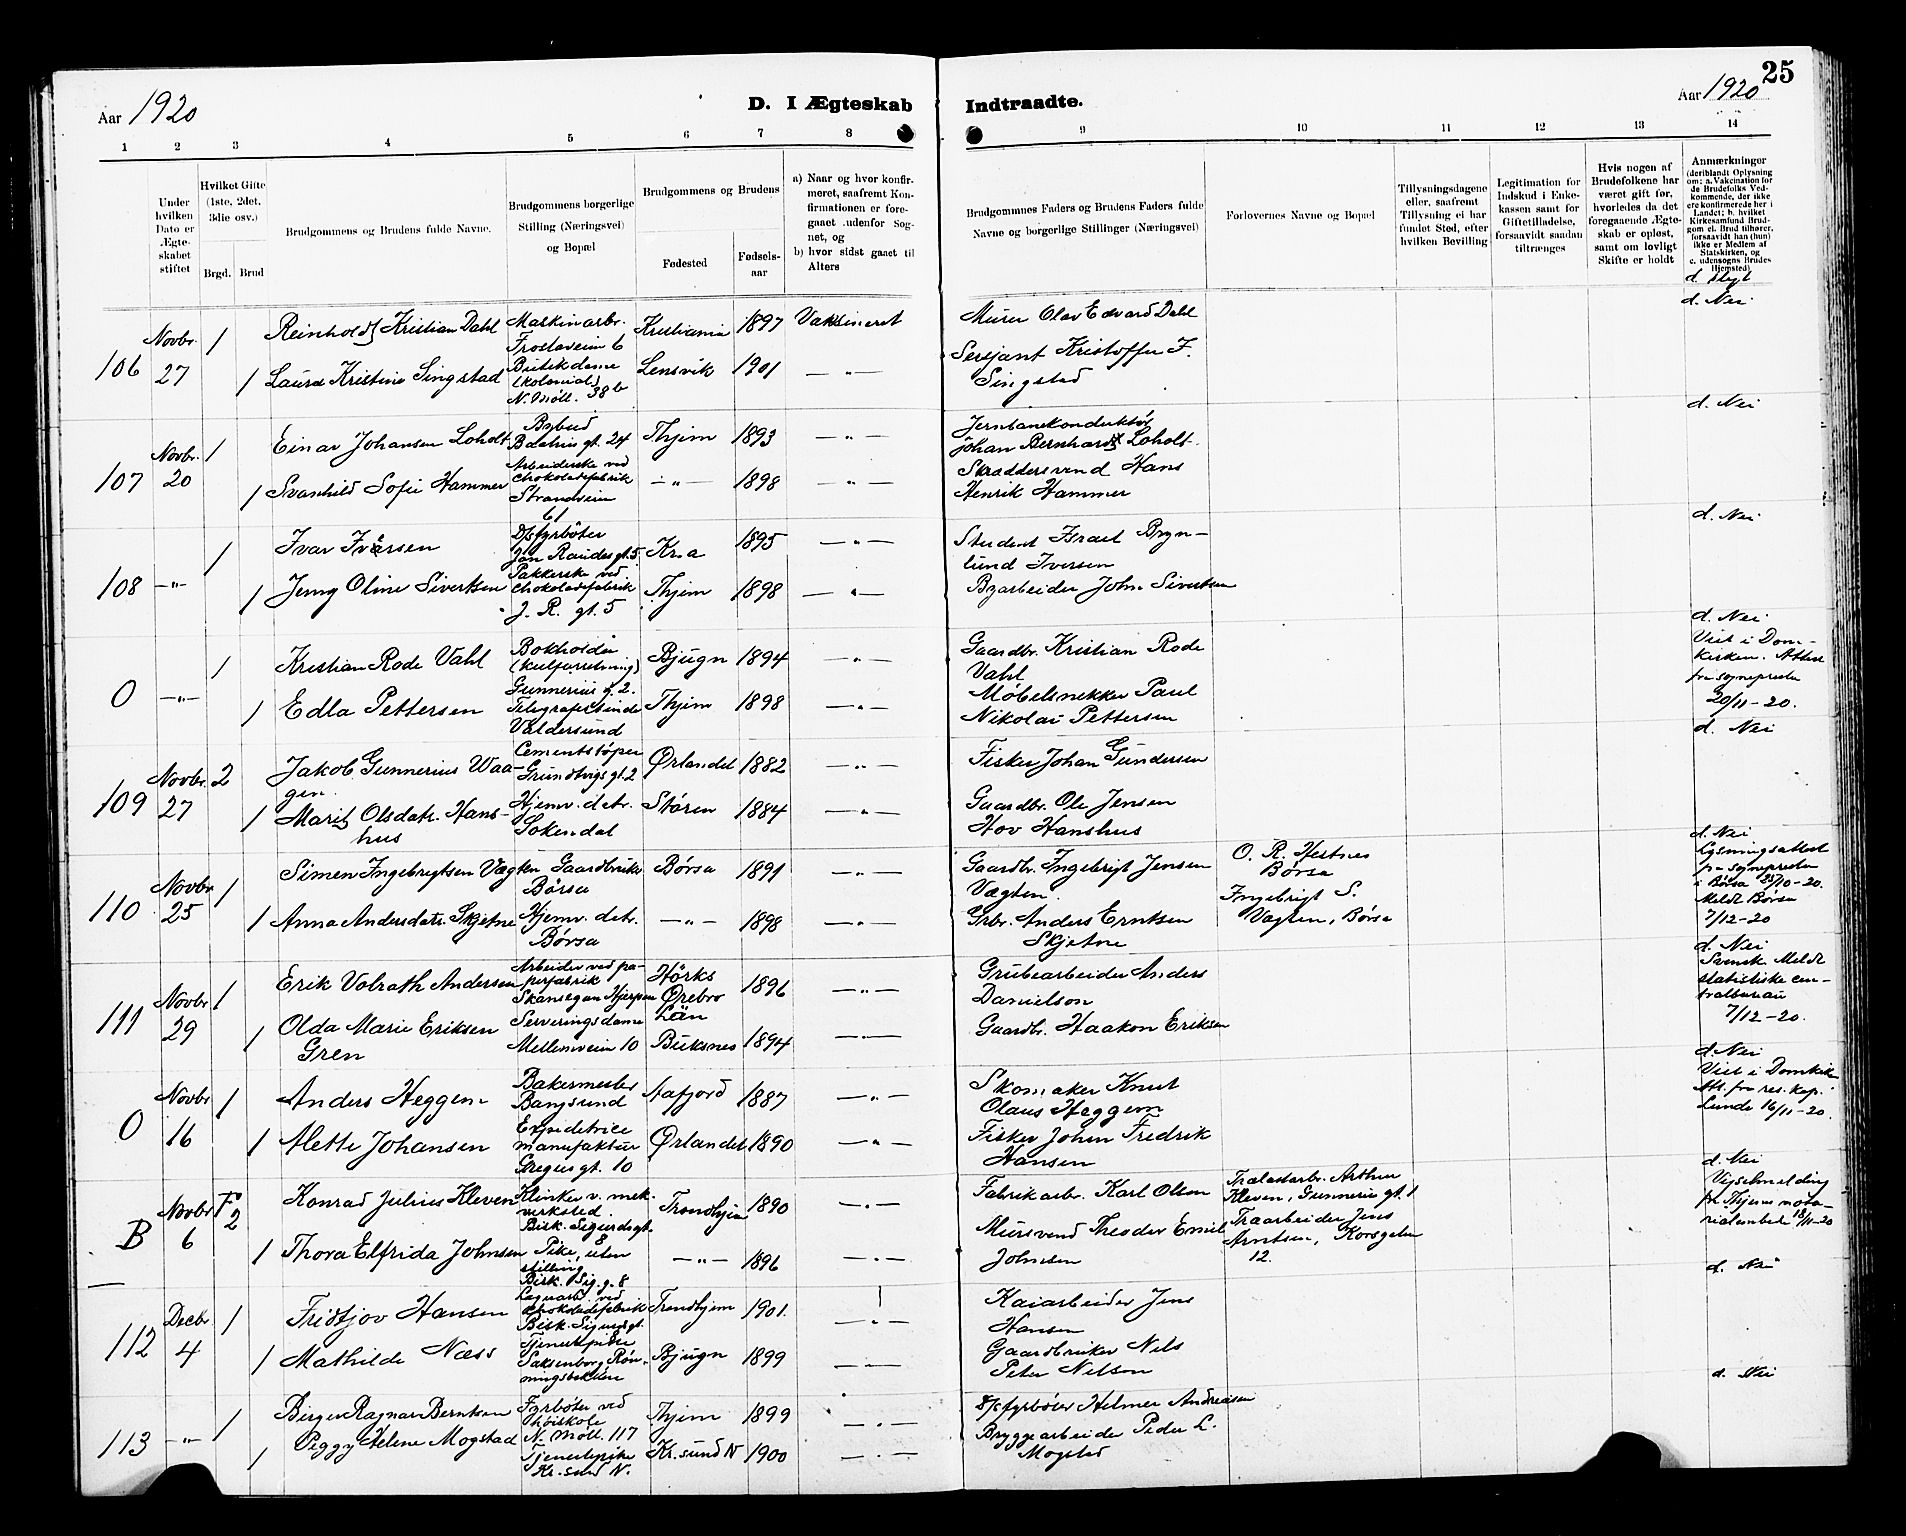 25
Aar 1920
D. I Ægteskab
Indtraadte.
Aar 1920
1 2 3 4 5 6 7 8 9 10 11 12 13 14
Under hvilken Dato er Ægteskabet stiftet
Hvilket Gifte (1ste, 2det, 3die osv.)
Brgd. Brud
Brudgommens og Brudens fulde Navne.
Brudgommens borgerlige Stilling (Næringsvei) og Bopæl
Brudgommens og Brudens
Fødested
Fødselsaar
a) Naar og hvor konfirmeret, saafremt Konfirmationen er foregaaet udenfor Sognet, og
b) hvor sidst gaaet til Alters
Brudgommnes Faders og Brudens Faders fulde Navne og borgerlige Stillinger (Næringsvei)
Forlovernes Navne og Bopæl
Tillysningsdagene eller, saafremt Tillysning ei har fundet Sted, efter hvilken Bevilling
Legitimation for Indskud i Enkekassen samt for Giftetilladelse, forsaavidt saadan tiltrænges
Hvis nogen af Brudefolkene har været gift før, hvorledes da det foregaaende Ægteskab er opløst, samt om lovligt Skifte er holdt
Anmærkninger (deriblandt Oplysning om: a. Vakcination for de Brudefolks Vedkommende, der ikke ere konfirmerede her i Landet; b. hvilket Kirkesamfund Brudgom el. Brud tilhører, forsaavidt han (hun) ikke er Medlem af Statskirken, og c. udensogns Brudes Hjemsted)
106
Novbr. 27
1
Reinhold Kristian Dahl
Maskinarbr.
Frostaveien 6
Kristiania 1897
Vaksineret
Murer Olav Edvard Dahl
d. Nei
1
Laura Kristine Singstad
Butikdame
(kolonial)
N. Møll. 38b
Lensvik 1901
— " —
Serjant Kristoffer F.
Singstad
107
Novbr. 20
1
Einar Johansen Loholt
Bybud
gt. 24
Thjem 1893
— " —
Jernbanekonduktør
Johan Bernhard Loholt
d. Nei
1
Svanhild Sofie Hammer
Arbeiderske ved
chokoladefabrik
Strandveien
61
— " — 1898
— " —
Skræddersvend Hans
Henrik Hammer
108
— " —
1
Ivar Iversen
D/S fyrbøter
Jon Raudes gt. 5
Kr.a 1895
— " —
Student Israel Bryn-
lund Iversen
d. Nei
1
Jenny Oline Sivertsen
Pakkerske ved
chokoladefabrik
J. R. gt. 5
Thjem 1898
— " —
Byarbeider John Sivertsen
O
— " —
1
Kristian Rode Vahl
Bokholder
(kulforretning)
Gunnerius g. 2.
Bjugn 1894
— " —
Gaardbr. Kristian Rode
Vahl
d. Nei
Viet i Dom-
kirken. Attest
fra sognepresten
20/11-20.
1
Edla Pettersen
Valdersund
Thjem 1898
— " —
Møbelsnekker Paul
Nikolai Pettersen
109
Novbr. 27
2
Jakob Gunnerius Waa-
gen
Cementstøper
Grundtvigs gt. 2
Ørlandet 1882
— " —
Fisker Johan Gundersen
d. Nei
1
Marit Olsdatr. Hans-
hus
Hjemv. datr.
Sokendal
Støren 1884
— " —
Gaardbr. Ole Jensen
Hov Hanshus
110
Novbr. 25
1
Simen Ingebrigtsen Vægten
Gaardbruker
Børsa
Børsa 1891
— " —
Gaardbr. Ingebrigt Jensen
Vægten
O. R. Hestnes
Børsa
d. Nei
Lysningsattest
fra sognepresten
i Børsa 25/10-20.
Meldt Børsa
7/12-20
1
Anna Andersdatr. Skjetne
Hjemv. datr.
Børsa
— " — 1898
— " —
Grbr. Anders Erntsen
Skjetne
Ingebrigt S.
Vægten, Børsa
111
Novbr 29
1
Erik Volrath Andersen
Arbeider ved pa-
pirfabrik
Hörks
Örebro
Län
1896
— " —
Grubearbeider Anders
Danielson
d. Nei
Svensk. Meldt
statistiske cen-
tralbureau
7/12-20.
1
Olda Marie Eriksen
Gren
Serveringsdame
Mellemveien 10
Buksnes 1894
— " —
Gaardbr. Haakon Eriksen
O
Novbr 16
1
Anders Heggem
Bakermester
Bangsund
Aafjord 1887
— " —
Skomaker Knut
Olaus Heggem
d. Nei
Viet i Domkirk
Att. fra res. kap.
Lunde 16/11-20.
1
Alette Johansen
Expeditrice
manufaktur
Gregus gt. 10
Ørlandet 1890
— " —
Fisker Johan Fredrik
Hansen
B
Novbr 6
F 2
Konrad Julius Kleven
Klinker v. mek.
verksted.
Bisk. Sigurds gt. 8
Trondhjem 1890
— " —
Fabrikarbr. Karl Olsen
Trælastarbr. Arthur
Kleven, Gunnerius gt. 1
d. Nei
Vigselmelding
fra Thjems nota-
rialembed 18/11-20
1
Thora Elfrida Johnsen
Pike, uten
stilling
Bisk. Sig. g. 8
— " — 1896
— " —
Mursvend Theodor Emil
Johnsen
Traarbeider Jens
Arntsen, Korsgaten
12.
112
Decbr 4
1
Fridtjov Hansen
Lagerarb. ved
chokoladefabrik
Bisk. Sigurds gt.
Trondhjem 1901.
— " —
Kaiarbeider Jens
Hansen
d. Nei
1
Mathilde Næss
Tjenestepike
Saksenborg Røn-
ningsbakken
Bjugn 1899
— " —
Gaardbruker Nils
Peter Nilsen
113
— " —
1
Birger Ragnar Berntsen
Fyrbøter ved
høiskole
N. Møll. 117
Thjem 1899
— " —
S/S fyrbøter Helmer Andreasen
d. Nei
1
Peggy Helene Mogstad
Tjenestepike
Kr. sund N.
Kr. sund N 1900
— " —
Bryggearbeider Peder L.
Mogstad